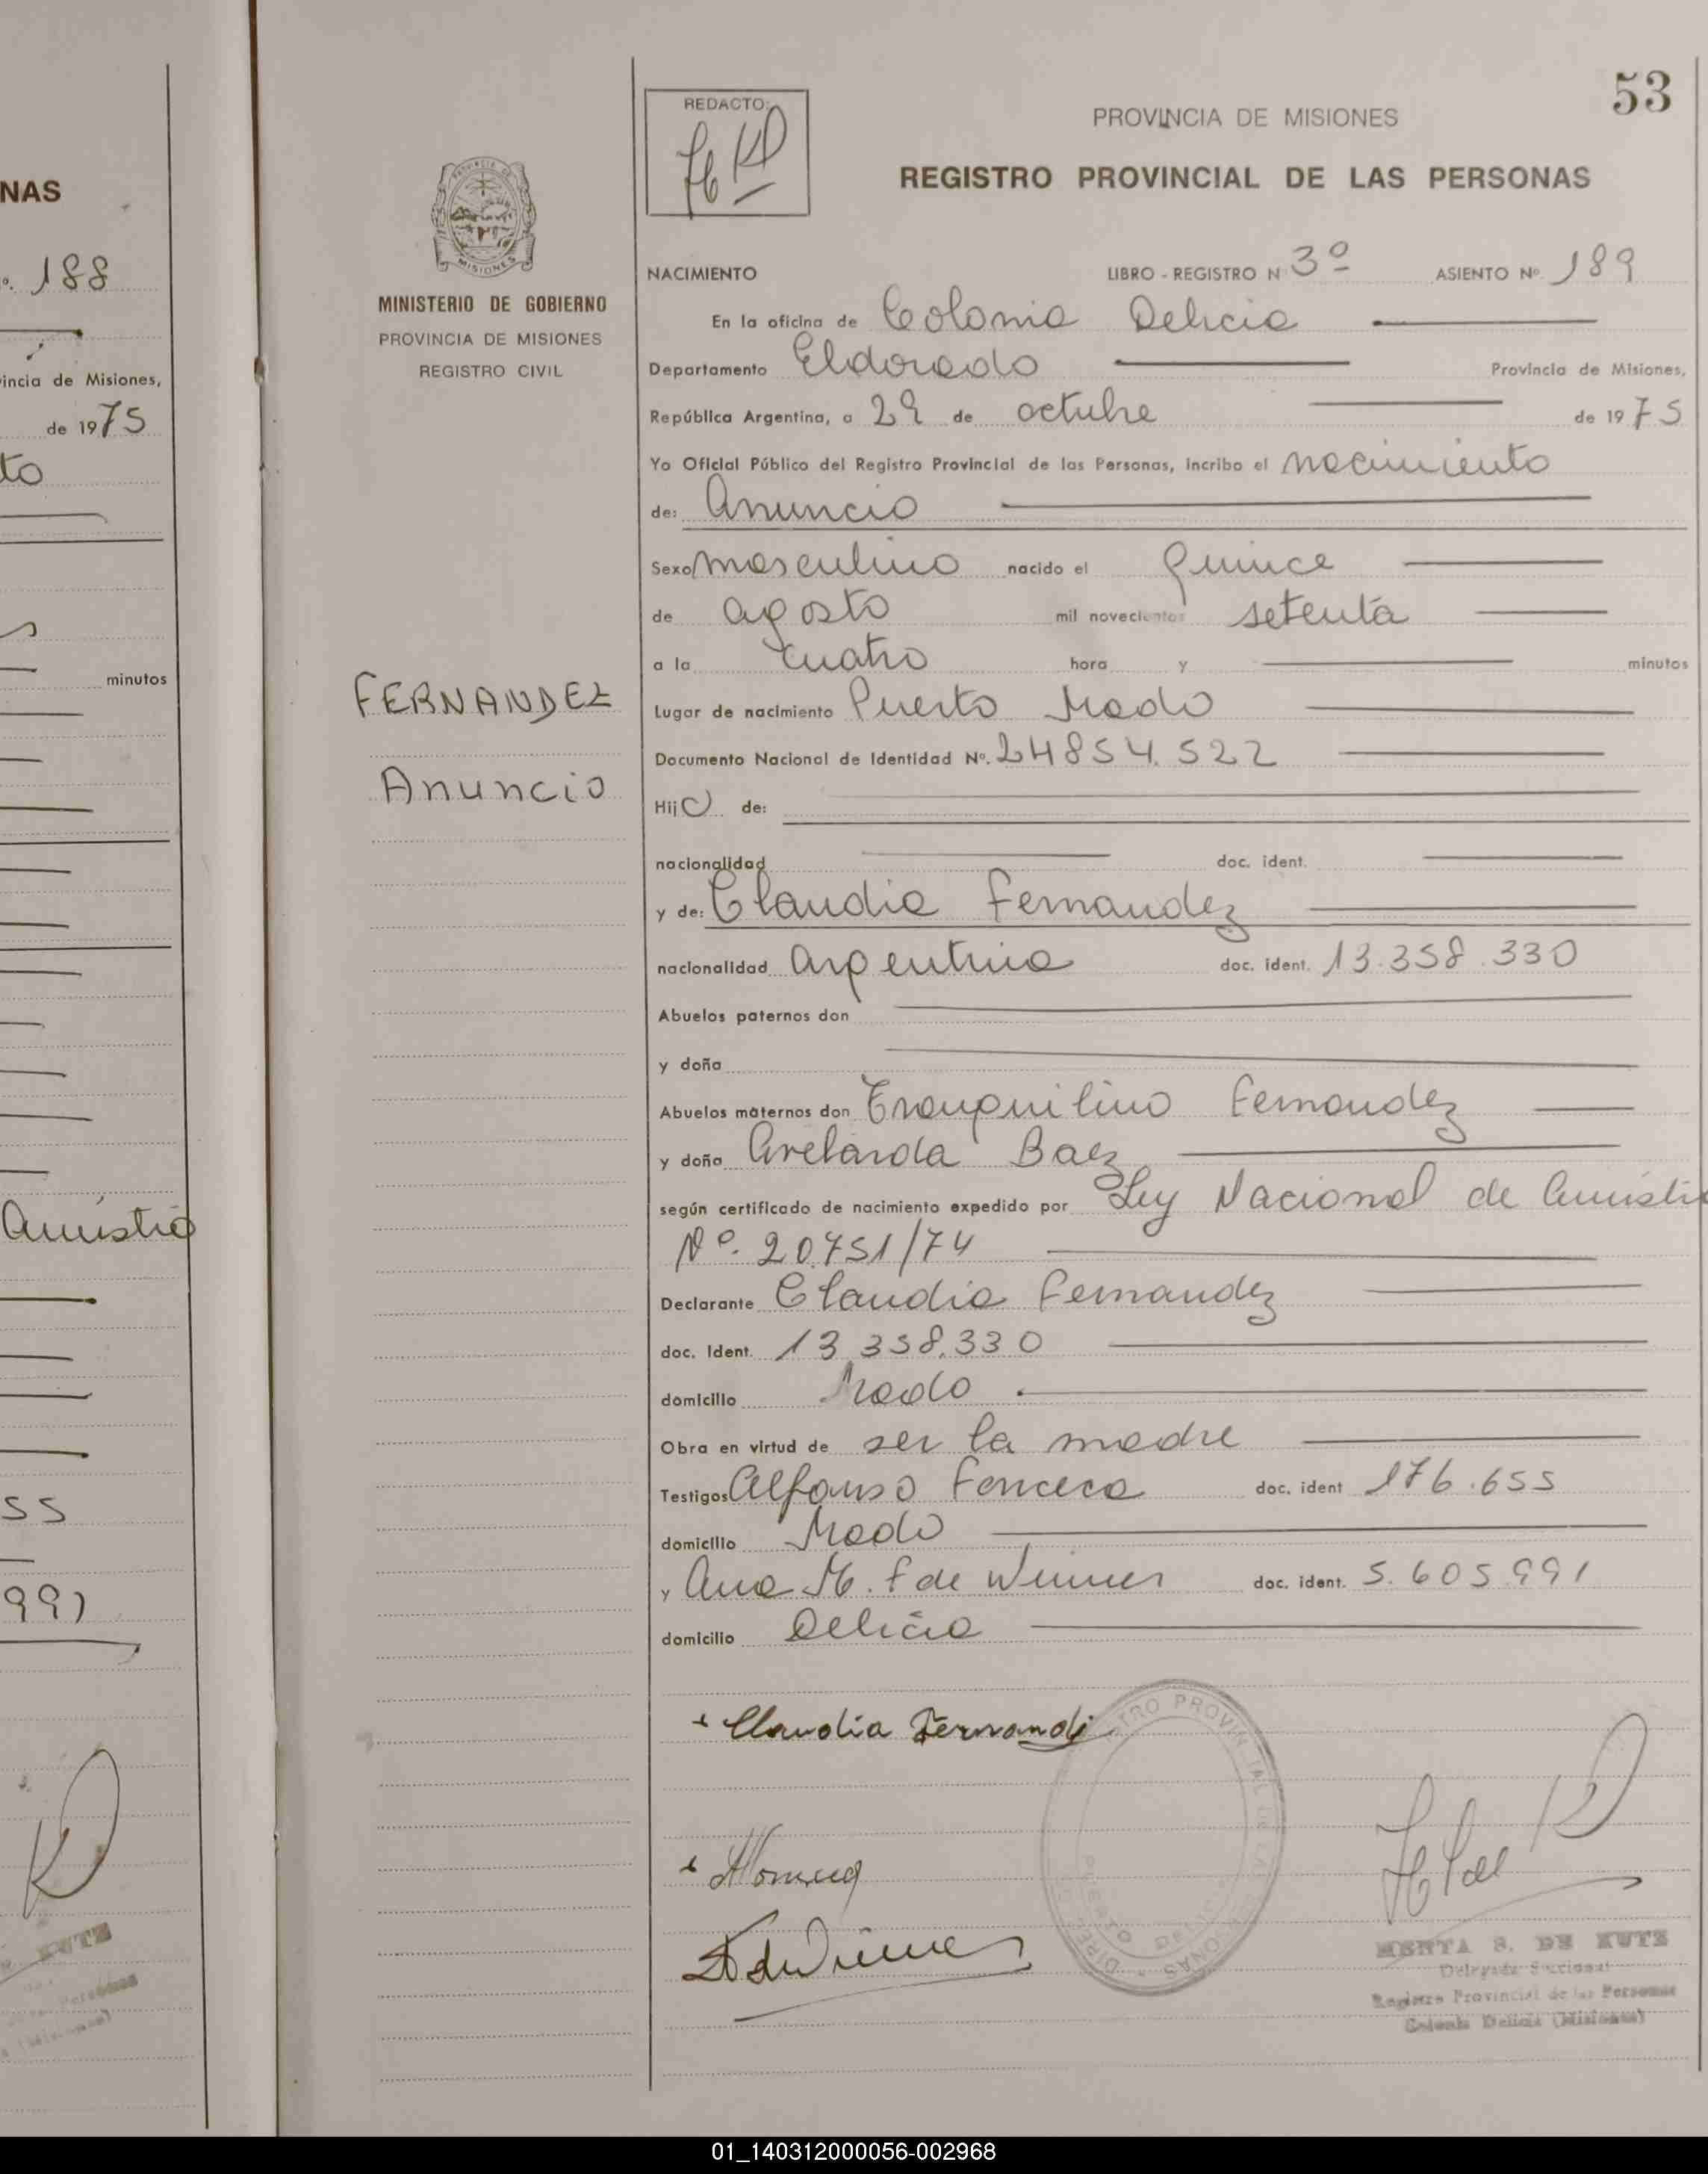 NAS
º. 188
incia de Misiones,
de 1975
to
minutos
Amistia
55
991
53
REDACTO:
PROVINCIA DE MISIONES
REGISTRO PROVINCIAL DE LAS PERSONAS
MISIONES
MINISTERIO DE GOBIERNO
PROVINCIA DE MISIONES
REGISTRO CIVIL
FERNANDEZ
Anuncio
NACIMIENTO LIBRO - REGISTRO N 3º ASIENTO Nº. 189
En la oficina de Colonia Delicia
Departamento Eldorado Provincia de Misiones,
República Argentina, a 29 de octubre de 1975
Yo Oficial Público del Registro Provincial de las Personas, incribo el nacimiento
de: Anuncio
Sexo masculino nacido el quince
de agosto mil novecientos setenta
a la cuatro hora y minutos
Lugar de nacimiento Puerto Mado
Documento Nacional de Identidad Nº. 24854.522
Hijo de:
nacionalidad doc. ident.
y de: Claudia Fernandez
nacionalidad argentina doc. ident. 13.358.330
Abuelos paternos don
y doña
Abuelos maternos don Tranquilino Fernandez
y doña Baez
según certificado de nacimiento expedido por Ley Nacional de Amistia
Nº. 20.751/74
Declarante Claudia Fernandez
doc. Ident. 13.358.330
domicilio Mado
Obra en virtud de ser la madre
Testigos Alfonso Fonceca doc. ident 176.655
domicilio Mado
y Ana M. F de Winner doc. ident. 5.605.991
domicilio Delicia
Claudia Fernandz
REGISTRO PROVINCIAL DE LAS PERSONAS
S. DE KUTZ
Delegada Seccional
Registro Provincial de las Personas
Colonia Delicia (Misiones)
01_140312000056-002968